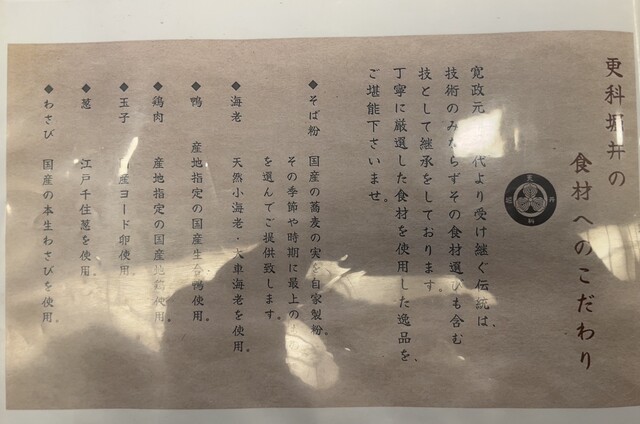 更科堀井の
食材へのこだわり
寛政元 代より受け継ぐ伝統は、
技術のみならずその食材選びも含む
技として継承をしております。
丁寧に厳選した食材を使用した逸品を、
ご堪能下さいませ。
◆そば粉 国産の蕎麦の実を自家製粉。
その季節や時期に最上の
を選んでご提供致します。
◆海老 天然小海老・大車海老を使用。
◆鴨 産地指定の国産生合鴨使用。
◆鶏肉 産地指定の国産地鶏使用。
◆玉子 産ヨード卵使用
◆葱 江戸千住葱を使用。
◆わさび 国産の本生わさびを使用。